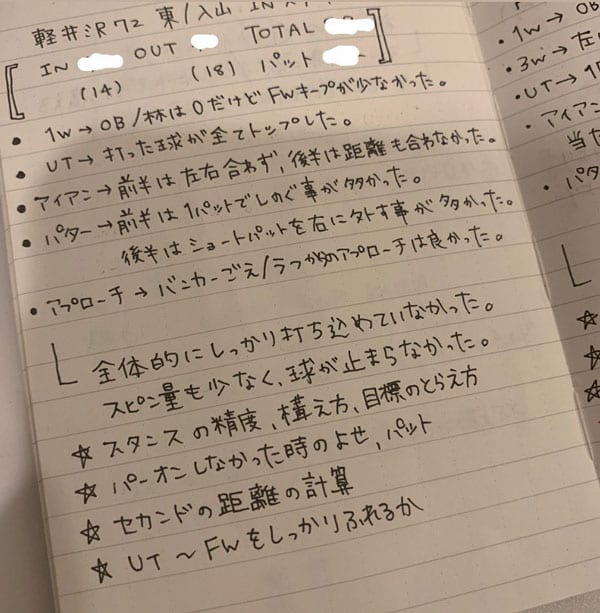 軽井沢72 東/入山 IN
IN OUT TOTAL
(14) (18) パット
• 1w → OB/林は0だけどFWキープが少なかった。
• UT → 打った球が全てトップした。
• アイアン → 前半は左右合わず,後半は距離も合わなかった。
• パター → 前半は1パットでしのぐ事が多かった。
後半はショートパットを右に外す事が多かった。
• アプローチ → バンカーごえ/ラフからのアプローチは良かった。
全体的にしっかり打ち込めていなかった。
スピン量も少なく、球が止まらなかった。
☆ スタンスの精度、構え方、目標のとらえ方
☆ パーオンしなかった時のよせ,パット
☆ セカンドの距離の計算
☆ UT〜FWをしっかりふれるか
• 1w → OB
• 3w → 左
• UT →
• アイアン
当た
• パタ
☆
☆
☆